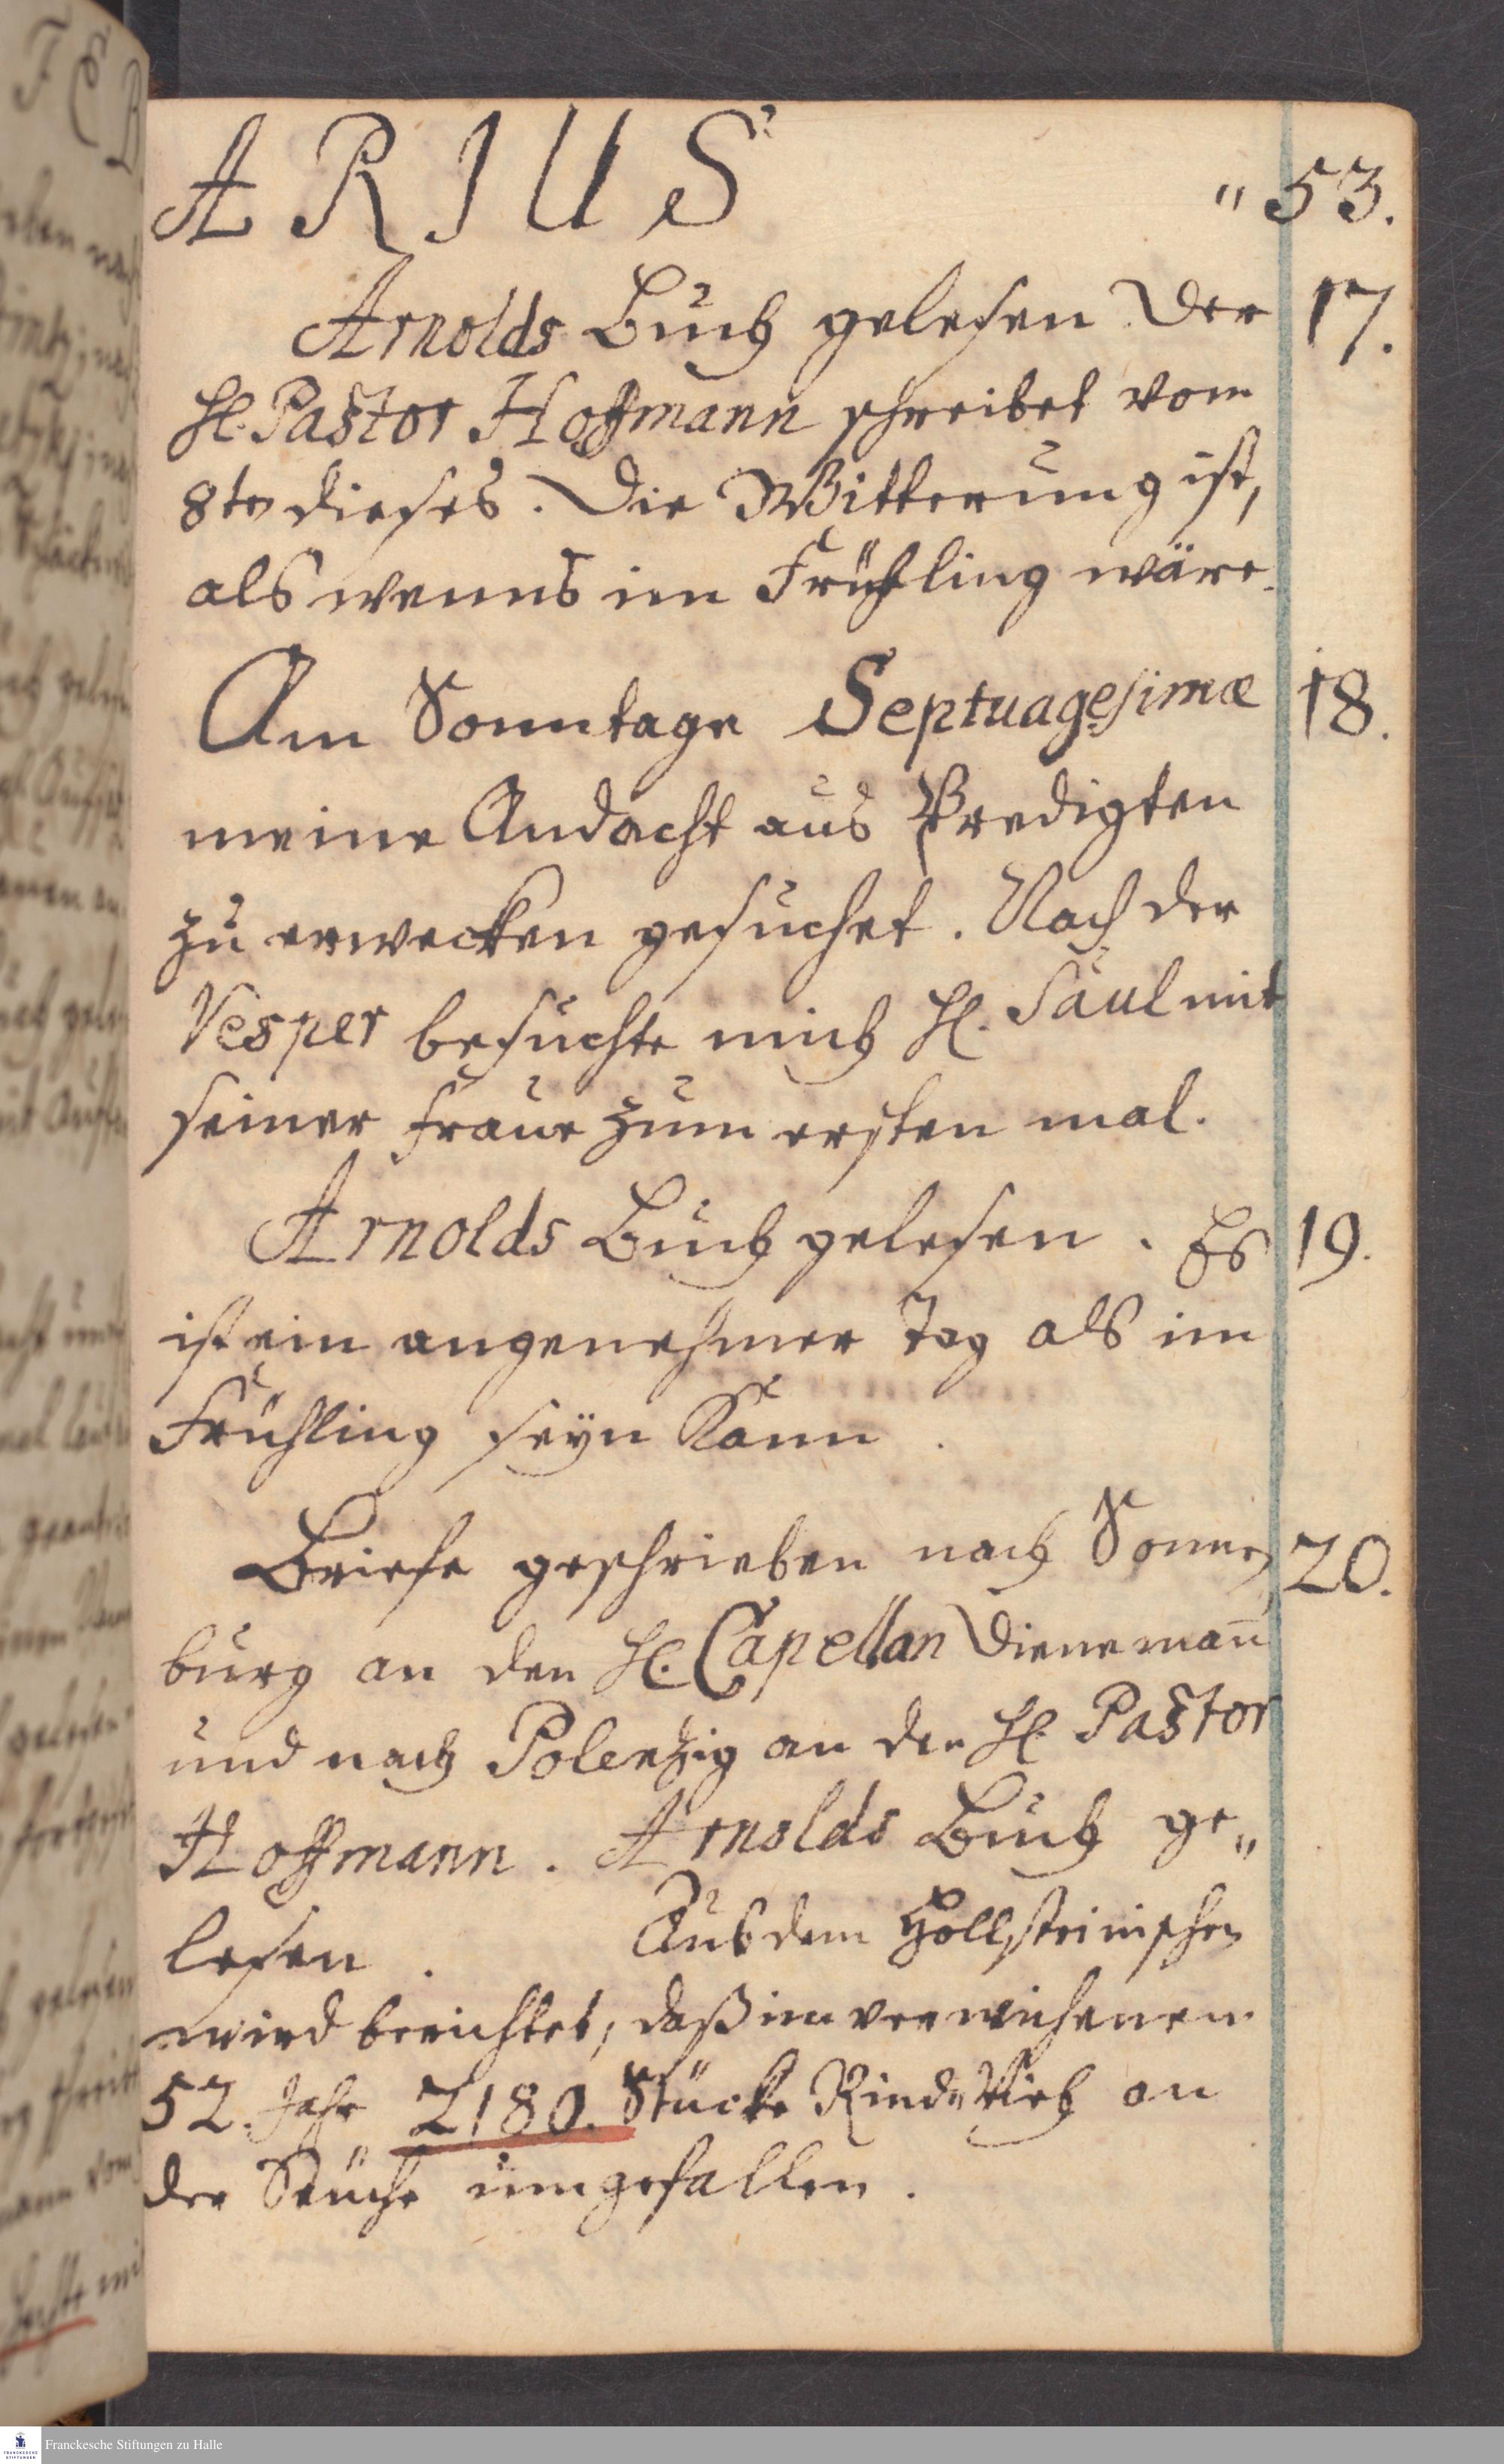 ARIUS „ 53.
Arnolds Buch gelesen. Der 17.
H. Pastor Hoffmann schreibet vom
8ten dieses. Die Witterung ist,
als wenns im Frühling wäre.
Am Sonntage Septuagesimæ 18.
meine Andacht aus Predigten
zu erwecken gesuchet. Nach der
Vesper besuchte mich H. Saul mit
seiner Fraue zum ersten mal.
Arnolds Buch gelesen. Es 19.
ist ein angenehmer Tag als im
Frühling seyn kann.
Briefe geschrieben nach Sonnen 20.
burg an den H. Capellan Dienemann
und nach Polenzig an den H. Pastor
Hoffmann. Arnolds Buch ge„
lesen. Aus dem Hollsteinischen
wird berichtet, daß im verwichenen
52. Jahr 2180. Stücke Rind„Vieh an
der Seuche umgefallen.
Franckesche Stiftungen zu Halle